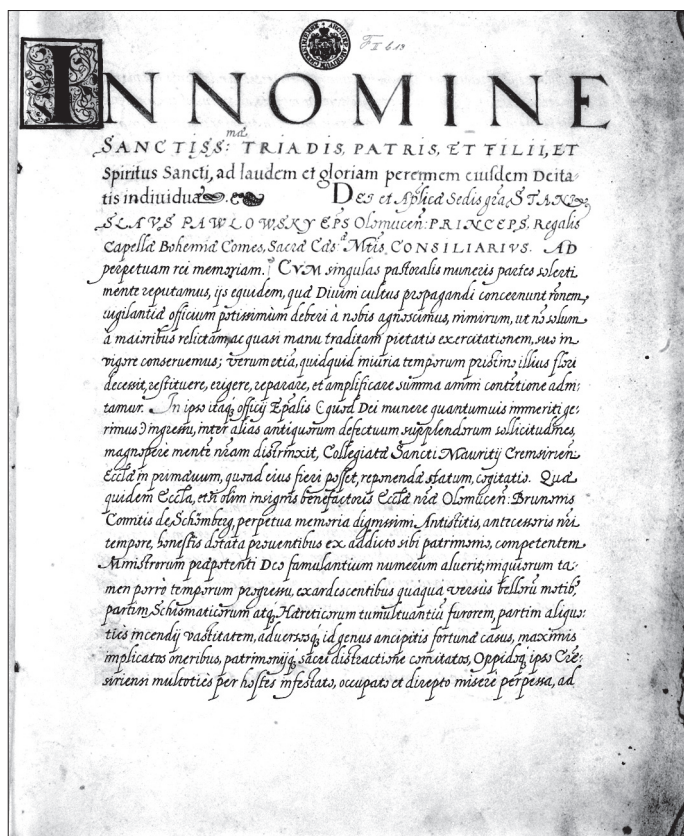 F II b 13
IN NOMINE
SANCTISS:mae TRIADIS, PATRIS, ET FILII, ET
Spiritus Sancti, ad laudem et gloriam perennem eiusdem Deita-
tis individuæ. DEI et Aplicæ Sedis gra, STANI-
SLAVS PAWLOWSKY EPS Olomucen: PRINCEPS, Regalis
Capellæ Bohemiæ Comes, Sacræ Cæs: Mtis, CONSILIARIVS. AD
perpetuam rei memoriam. CVM singulas pastoralis muneris partes solerti
mente reputamus, ijs equidem, quæ Divini cultus propagandi concernunt ronem,
vigilantiæ officium potissimum deberi à nobis agnoscimus, nimirum, ut no solum
à maioribus relictam, ac quasi manu traditam pietatis exercitationem, suo in
vigore conservemus; verum etiã, quidquid iniuria temporum pristino illius flori
decessit, restituere, erigere, reparare, et amplificare summa animi contentione adni-
tamur. In ipso itaq officij Epalis (quod Dei munere quantumvis immeriti ge-
rimus) ingressu, inter alias antiquorum defectuum supplendorum sollicitudines,
magnopere mentẽ nram distrinxit, Collegiatæ Sancti Mauritij Cremsirien
Ecclæ in primævum, quoad eius fieri posset, reponendæ statum, cogitatio. Quæ
quidem Eccla, etsi olim insignis benefactoris Ecclæ nræ Olomucen: Brunonis
Comitis de Schömberg, perpetua memoria dignissimi Antistitis, antecessoris nri
tempore, honestis dotata proventibus ex addicto sibi patrimonio, competentem
Ministrorum præpotenti Deo famulantium numerum aluerit; iniquiorum ta-
men porrò temporum progressu, exardescentibus quaqua versùs bellorũ motib,
partim Schismaticorum atq Hæreticorum tumultuantiũ furorem, partim aliquo-
ties incendij vastitatem, adversosq id genus ancipitis fortunæ casus, maximis
implicatos oneribus, patrimonijq sacri distractione comitatos, Oppidoq ipso Cre-
siriensi multoties per hostes infestato, occupato et direpto miserè perpessa, ad